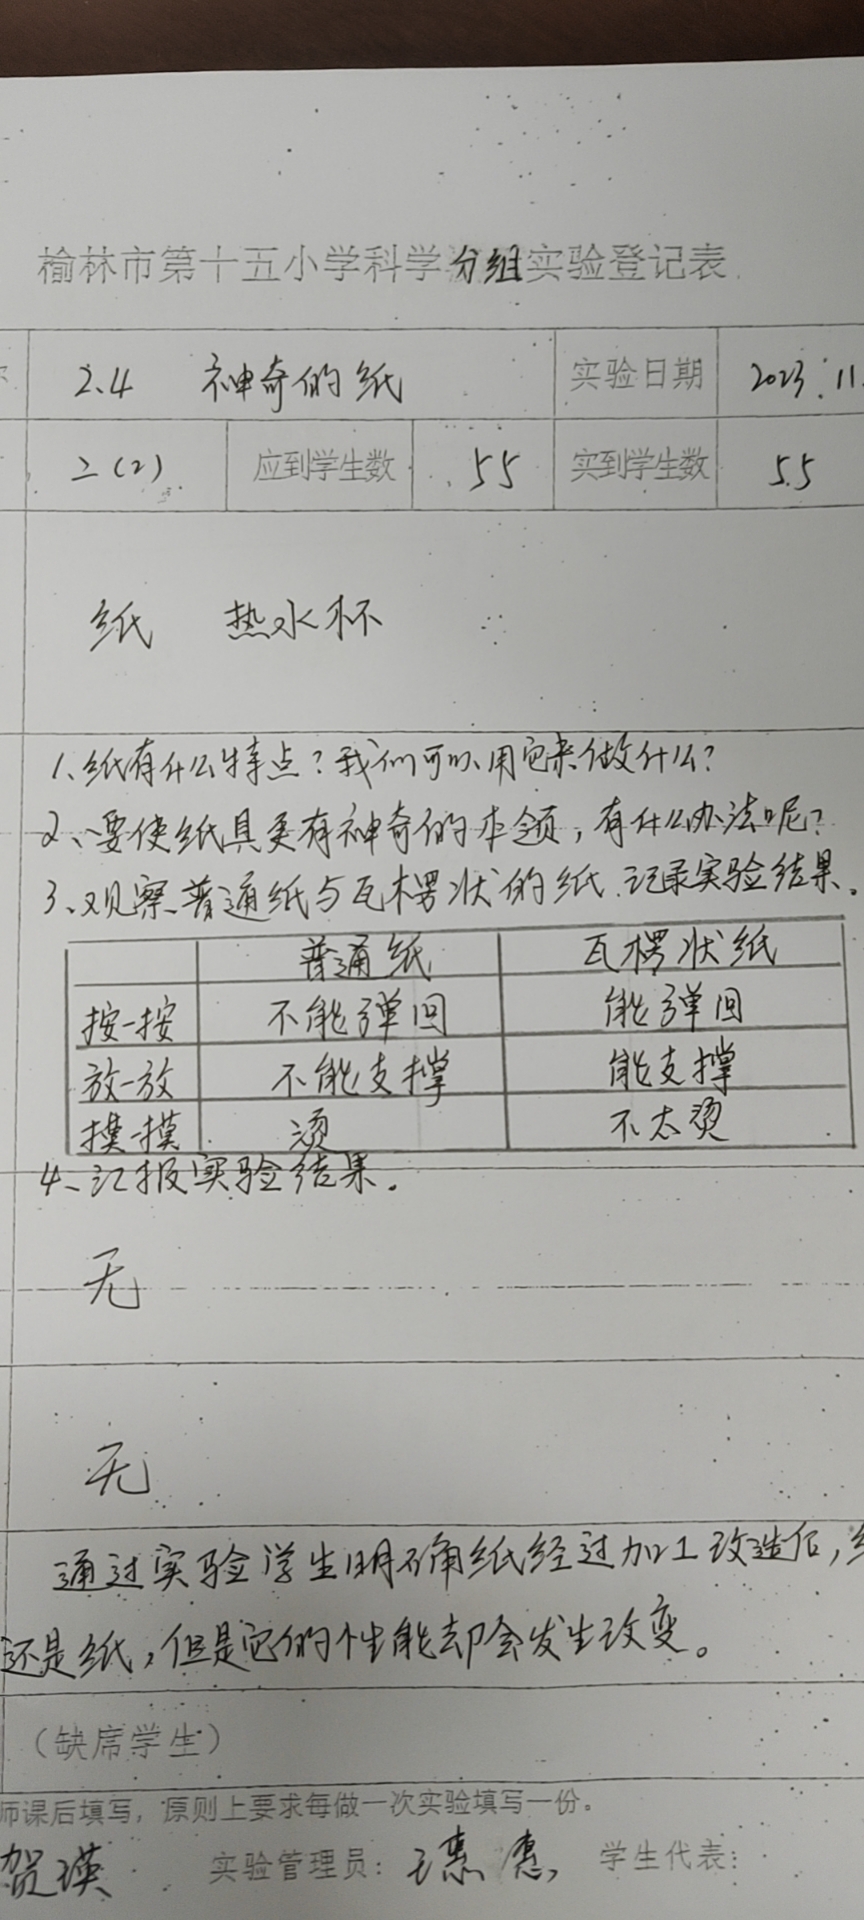 榆林市第十五小学科学分组实验登记表
2.4 神奇的纸 实验日期 2023.11.
二(2) 应到学生数 55 实到学生数 55
纸 热水杯
1、纸有什么特点?我们可以用它来做什么?
2、要使纸具更有神奇的本领,有什么办法呢?
3、观察普通纸与瓦楞状的纸.记录实验结果.
普通纸 瓦楞状纸
按一按 不能弹回 能弹回
放一放 不能支撑 能支撑
摸一摸 烫 不太烫
4、汇报实验结果.
无
无
通过实验学生明确纸经过加工改造后,
还是纸,但是它的性能却会发生改变。
(缺席学生)
师课后填写,原则上要求每做一次实验填写一份。
贺瑛 实验管理员: 学生代表: